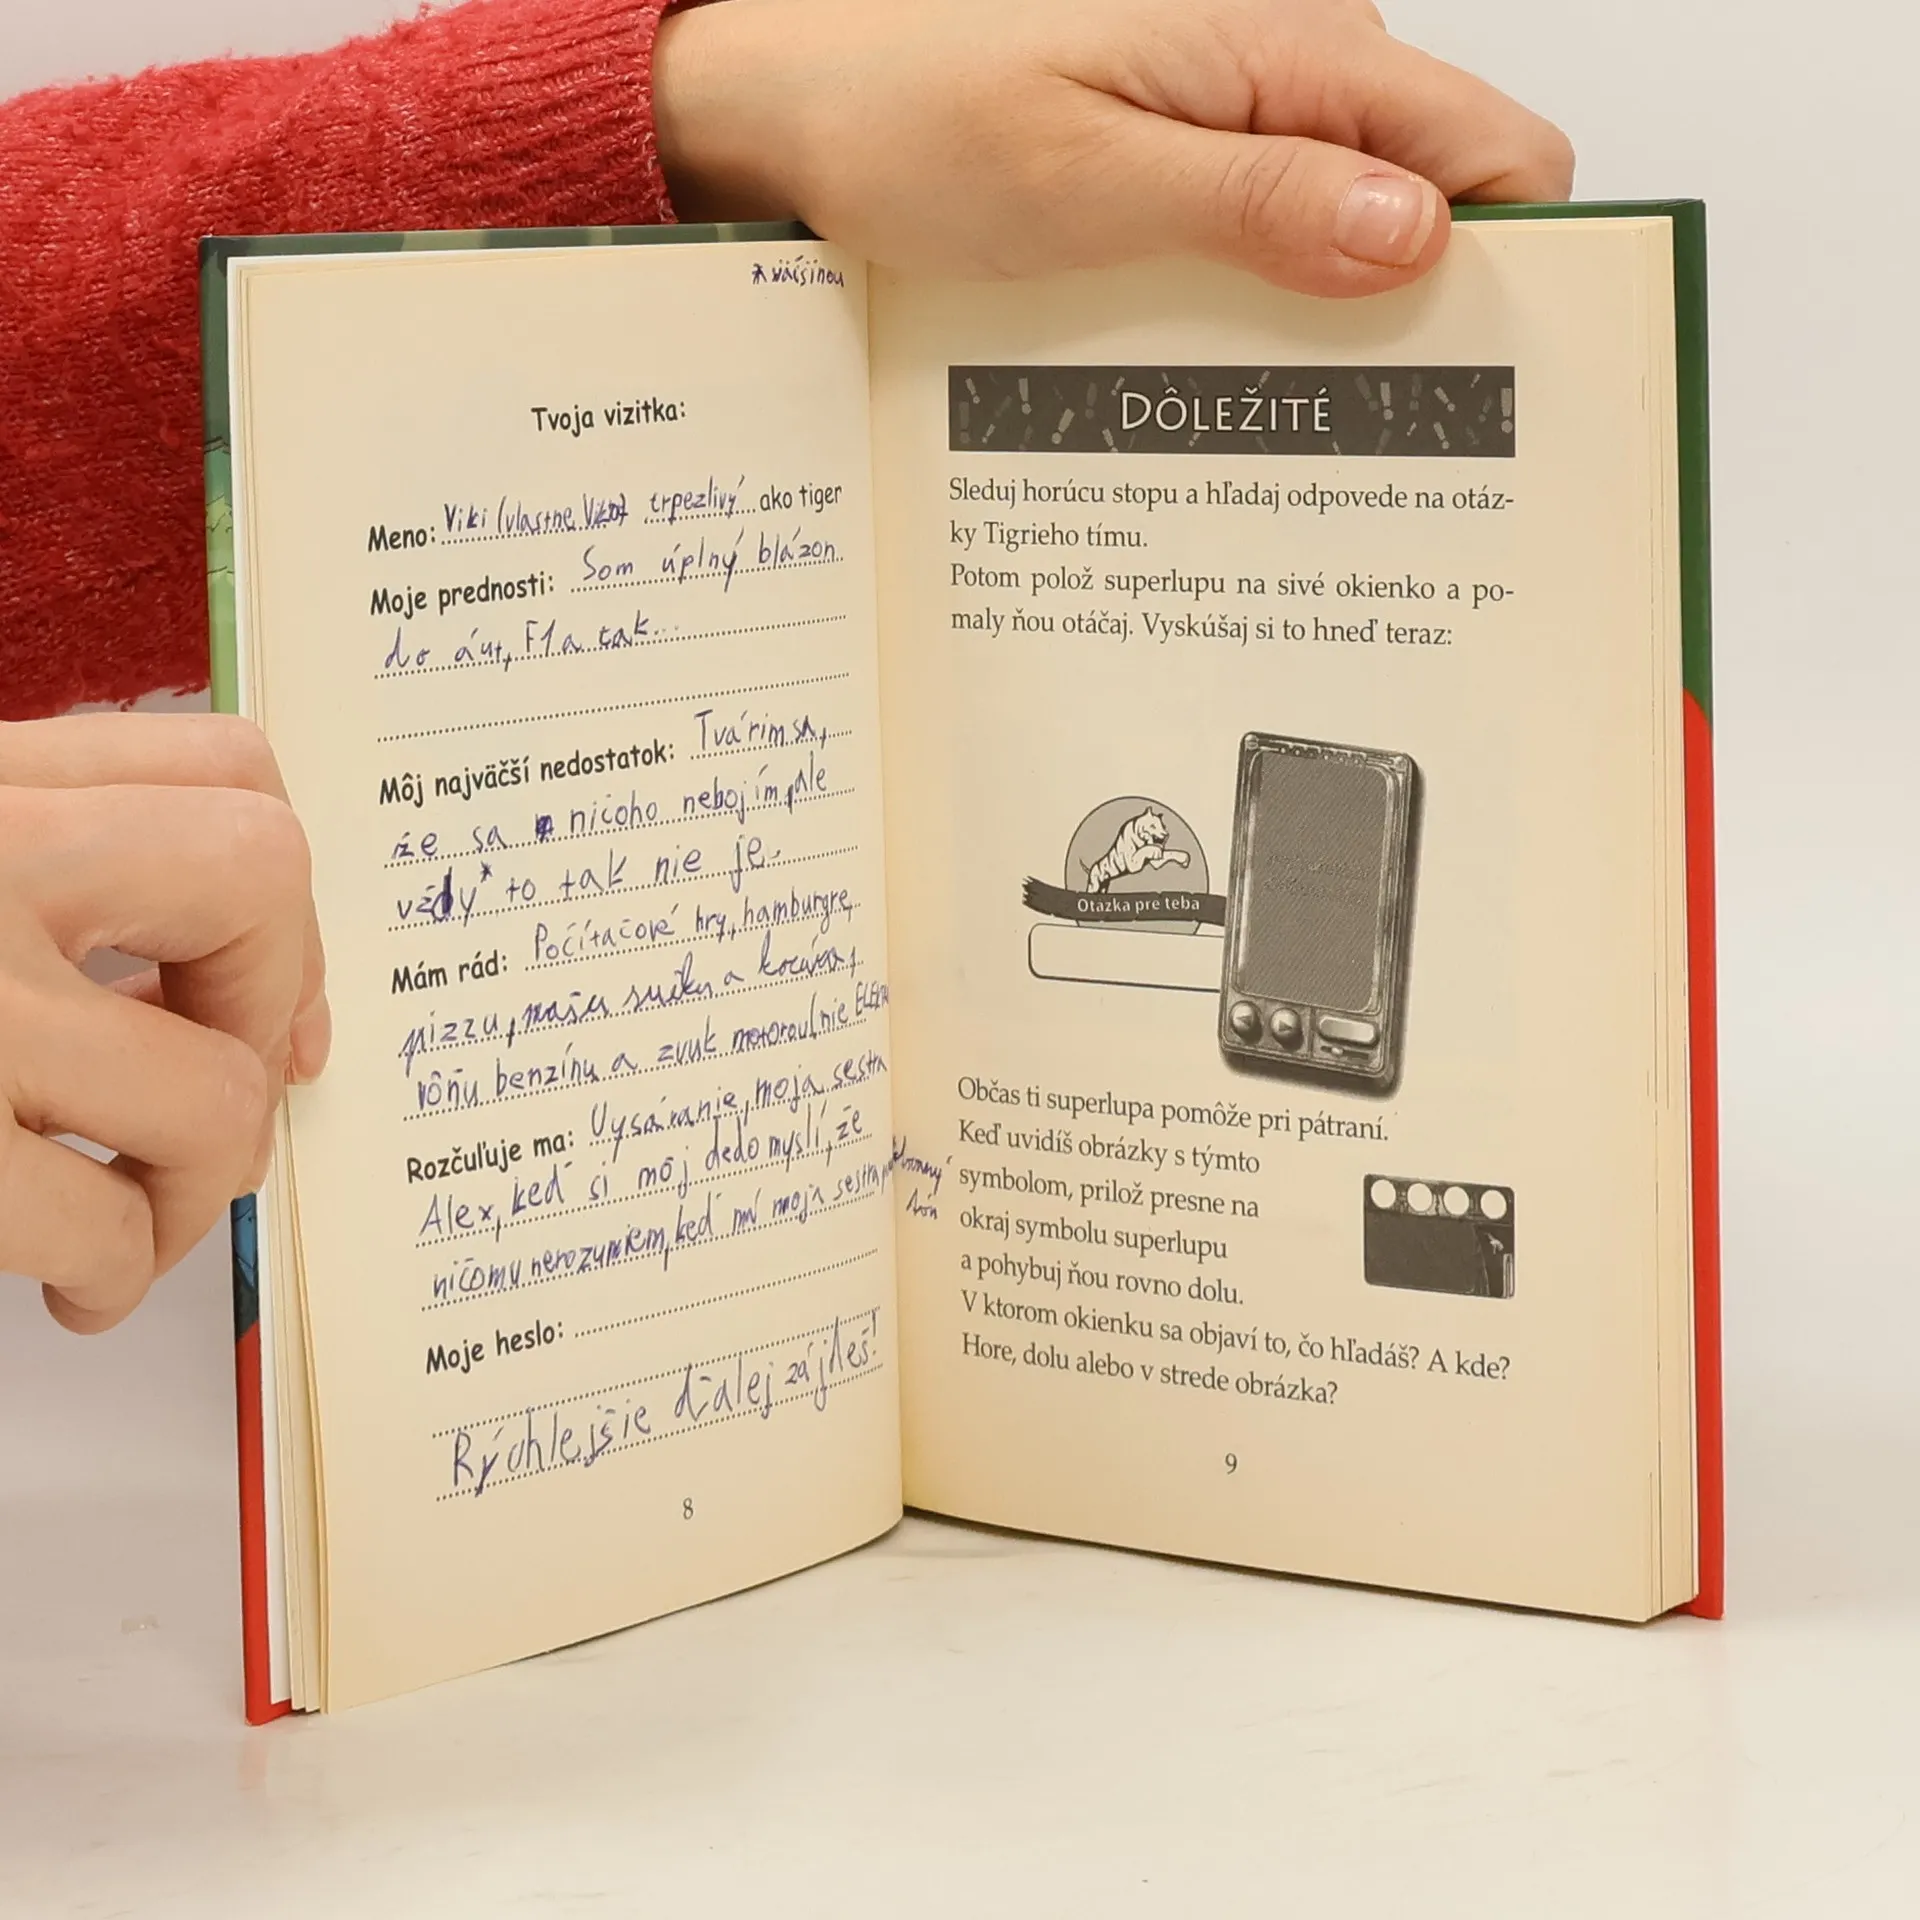 * väčšinou
Tvoja vizitka:
Meno: Viki (vlastne trpezlivý ako tiger
Moje prednosti: Som úplný blázon
do áut, F1 a tak...
Môj najväčší nedostatok: Tvárim sa,
že sa ničoho nebojím, ale
vždy* to tak nie je.
Mám rád: Počítačové hry, hamburgre,
pizzu, našu a
vôňu benzínu a zvuk nie
Rozčuľuje ma: Vysávanie, moja sestra
Alex, keď si môj dedo myslí, že
ničomu nerozumiem, keď mi moja sestra
Moje heslo:
Rýchlejšie ďalej zájdeš!
8
DÔLEŽITÉ
Sleduj horúcu stopu a hľadaj odpovede na otáz-
ky Tigrieho tímu.
Potom polož superlupu na sivé okienko a po-
maly ňou otáčaj. Vyskúšaj si to hneď teraz:
Otázka pre teba
Občas ti superlupa pomôže pri pátraní.
Keď uvidíš obrázky s týmto
symbolom, prilož presne na
okraj symbolu superlupu
a pohybuj ňou rovno dolu.
V ktorom okienku sa objaví to, čo hľadáš? A kde?
Hore, dolu alebo v strede obrázka?
9